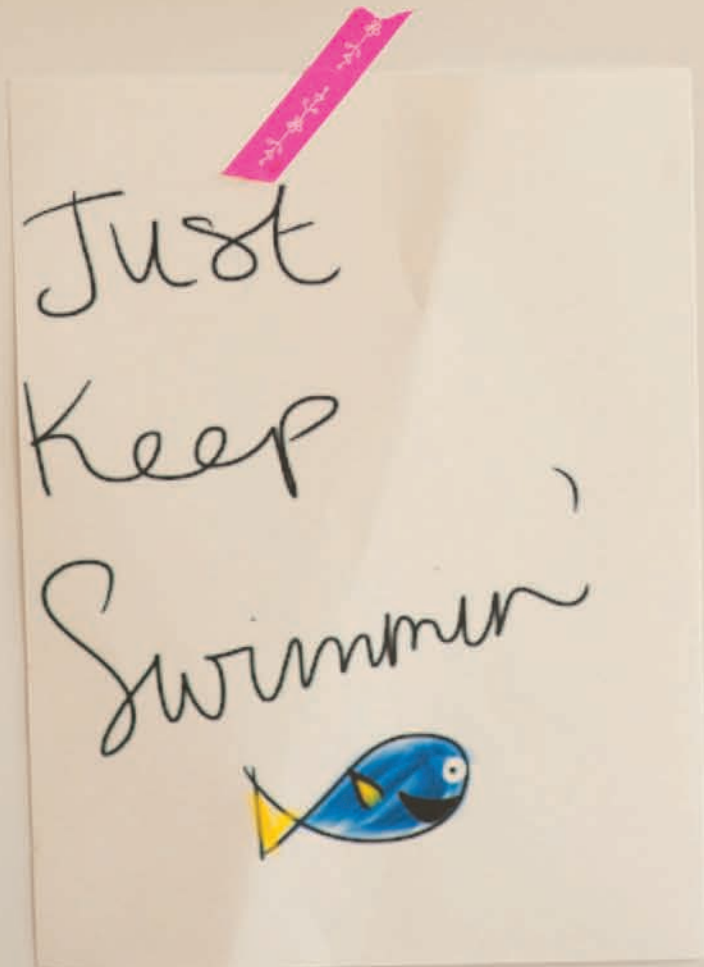 Just
Keep
Swimmin'